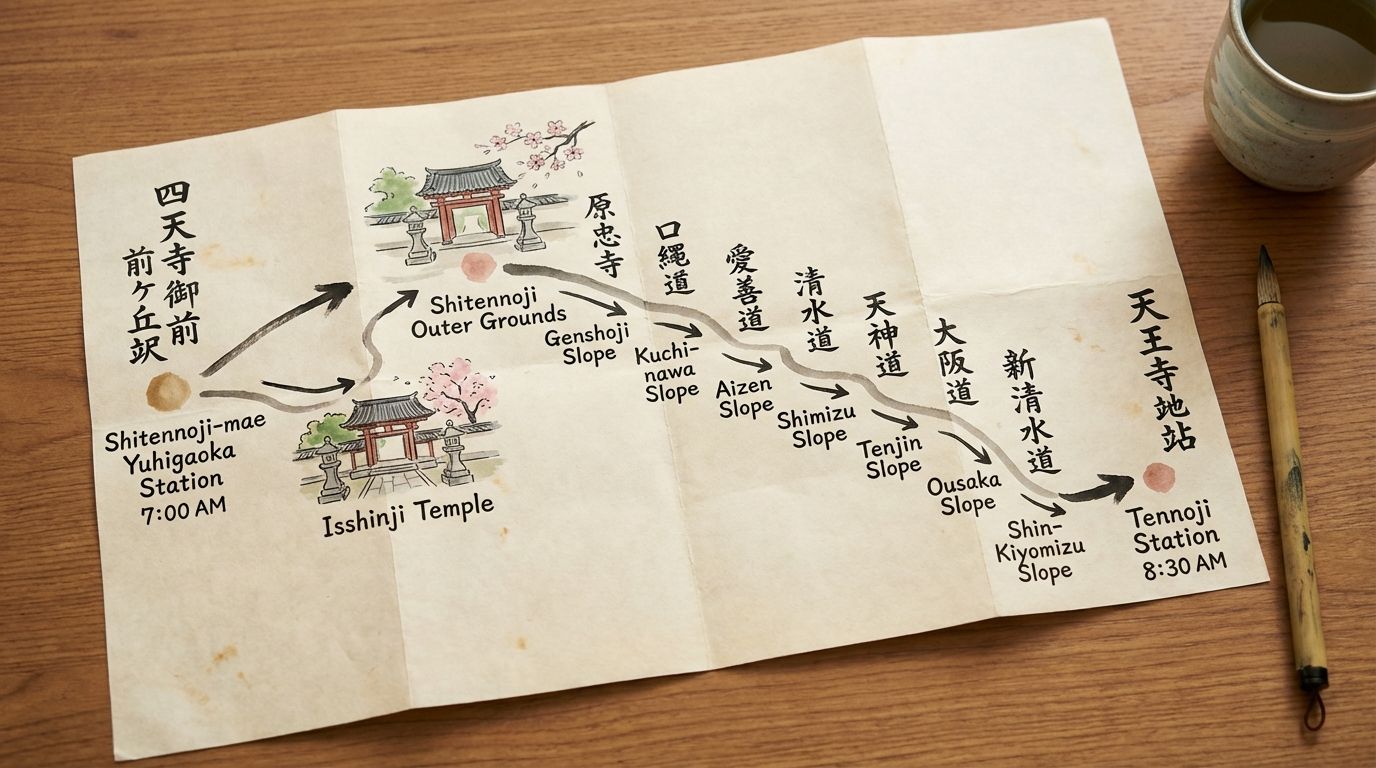 四天寺御前
前ケ丘訳
Shitennoji-mae
Yuhigaoka
Station
7:00 AM
Isshinji Temple
Shitennoji
Outer Grounds
原忠寺
Genshoji
Slope
口繩道
Kuchi-
nawa
Slope
愛善道
Aizen
Slope
清水道
Shimizu
Slope
天神道
Tenjin
Slope
大阪道
Ousaka
Slope
新清水道
Shin-
Kiyomizu
Slope
天王寺地站
Tennoji
Station
8:30 AM